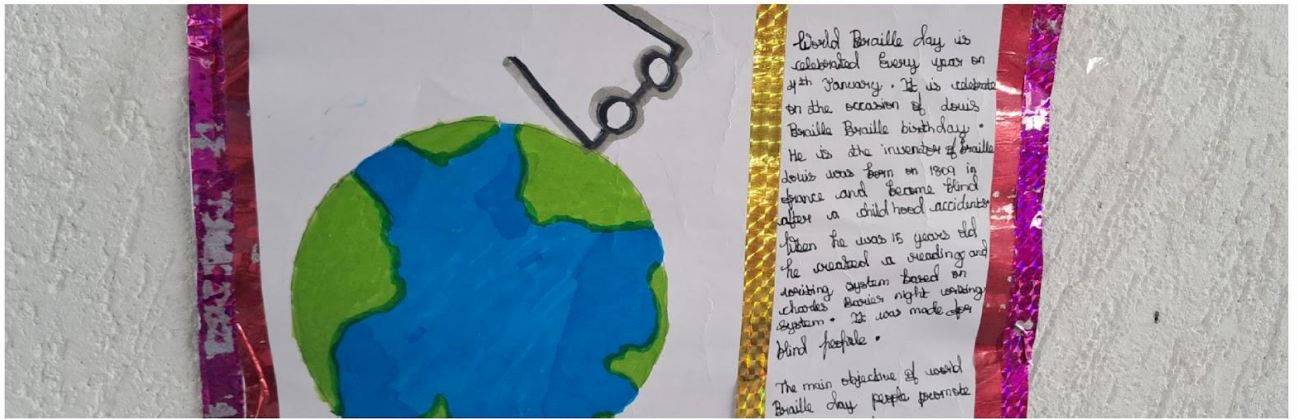 World Braille day is
celebrated Every year on
4th January. It is celebrate
on the occasion of Louis
Braille Braille birthday.
He is the inventor of Braille
Louis was born on 1809 in
france and become blind
after a child hood accidents.
When he was 15 years old
he created a reading and
writing system based on
charles Barier night writing
system. It was made for
blind people.
The main objective of world
Braille day people promote